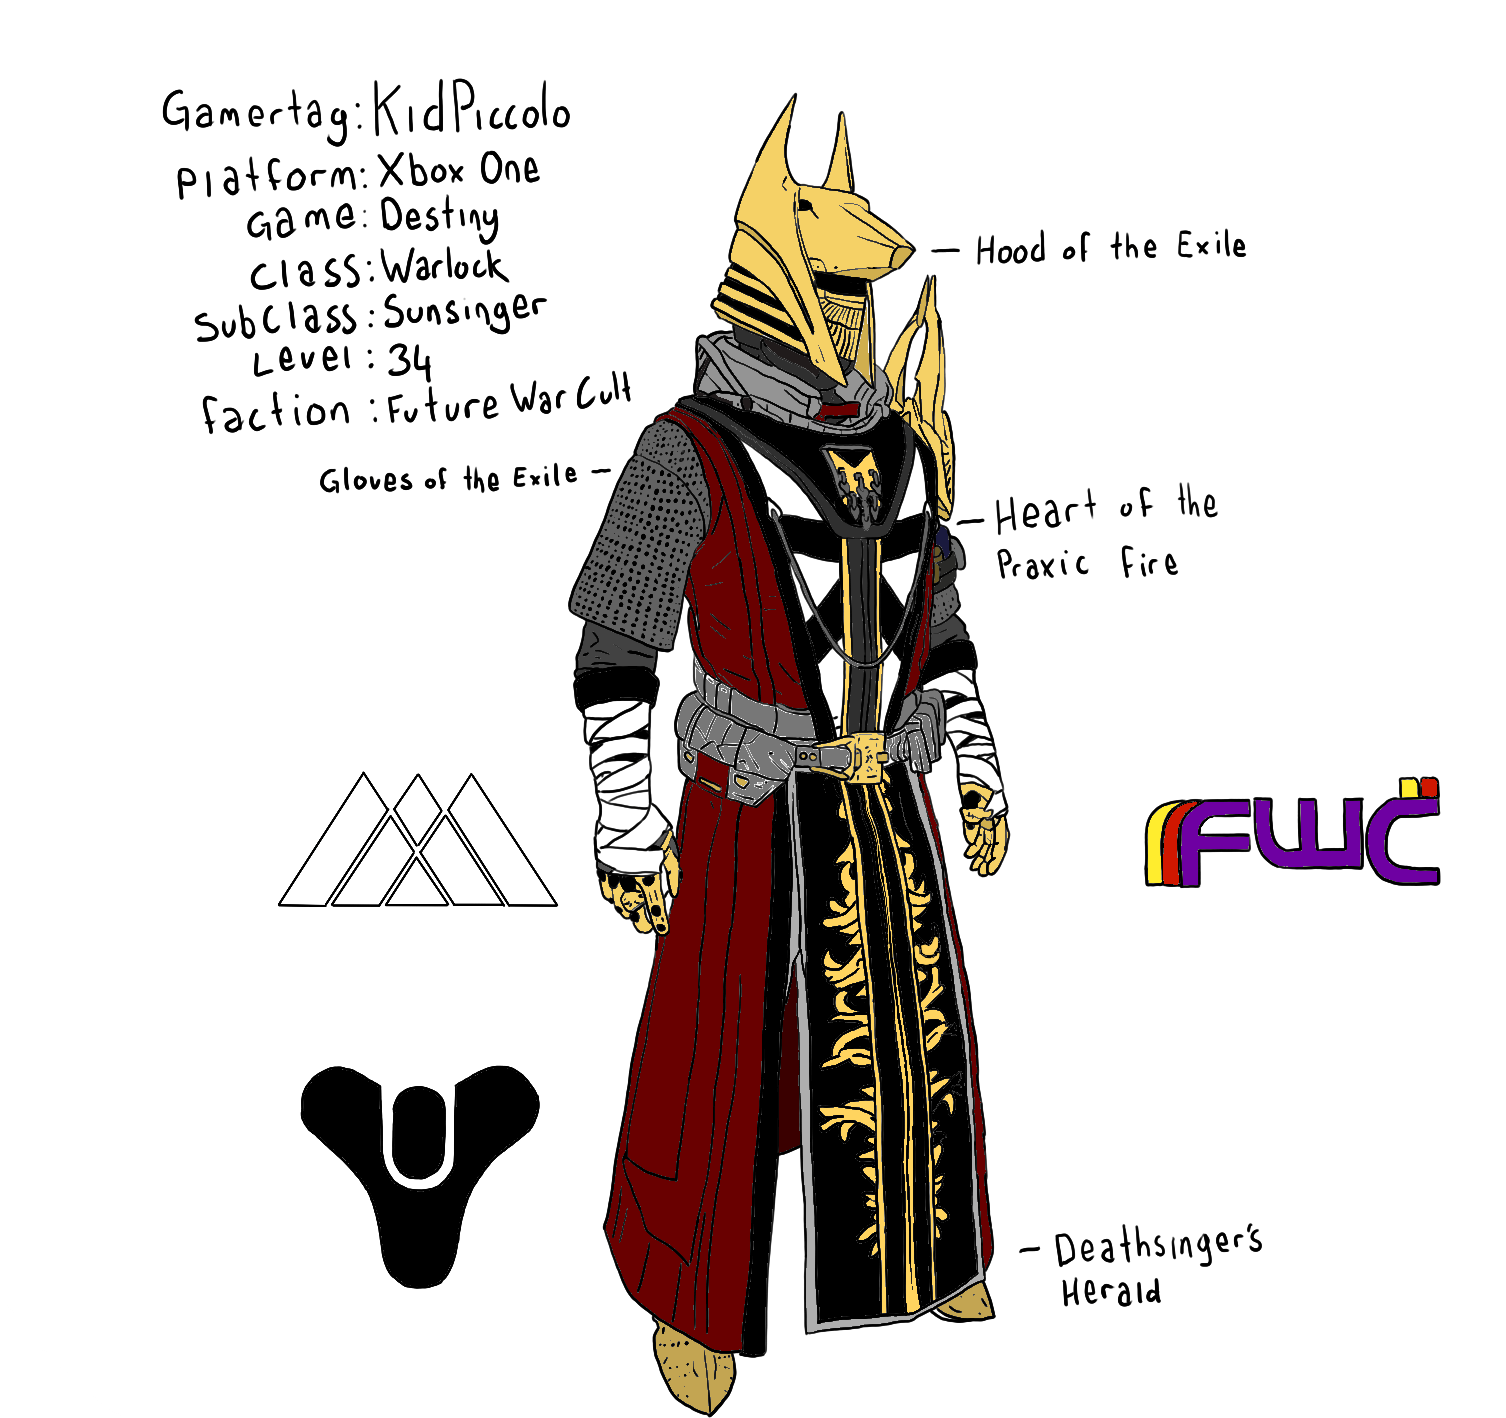 Gamertag: KidPiccolo
Platform: Xbox One
Game: Destiny
Class: Warlock
SubClass: Sunsinger
Level: 34
Faction: Future War Cult
Gloves of the Exile –
– Hood of the Exile
– Heart of the
Praxic Fire
FWC
– Deathsinger's
Herald